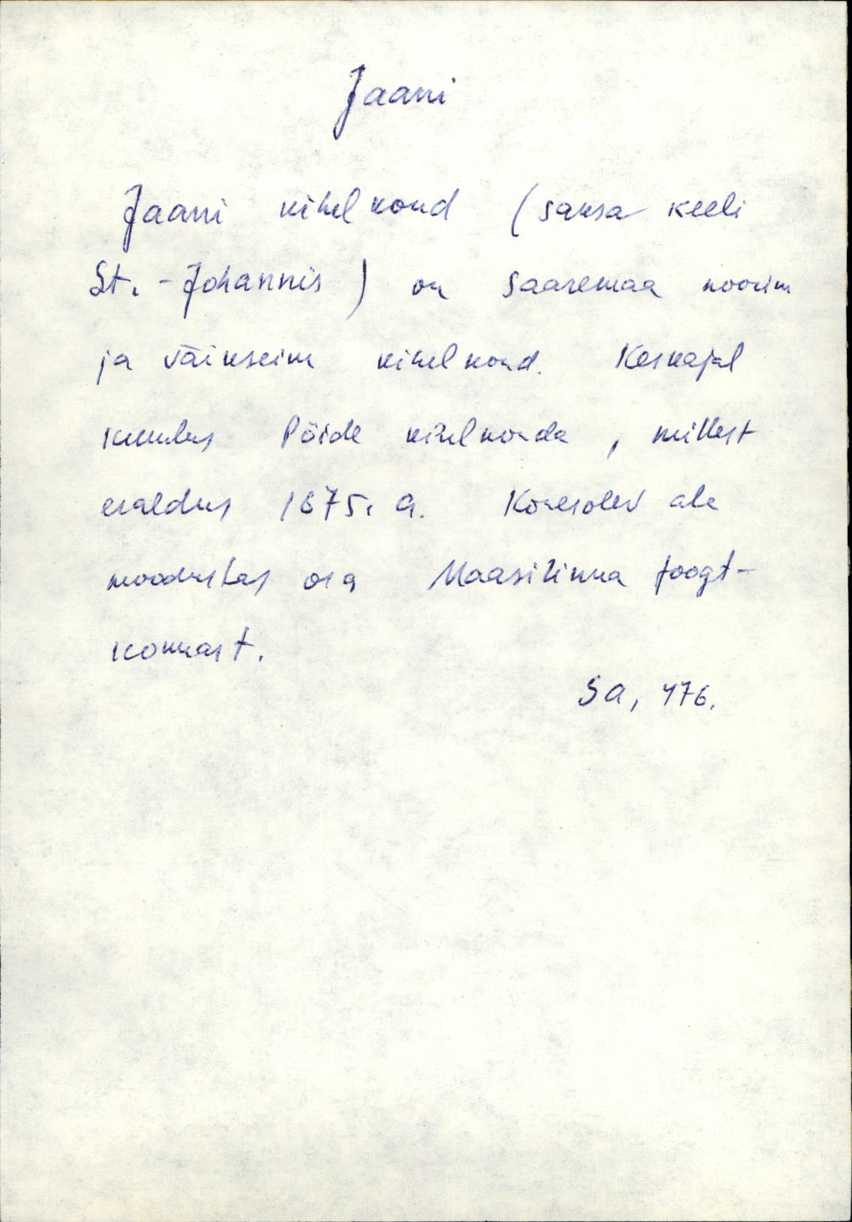 Jaani
Jaani kihelkond (saksa keeli
St.-Johannis) on Saaremaa noorim
ja väikseim kihelkond. Keskajal
kuulus Pöide kihelkonda, millest
eraldus 1675. a. Kõnesolev ala
moodustas osa Maasilinna foogt-
konnast.
Sa, 476.